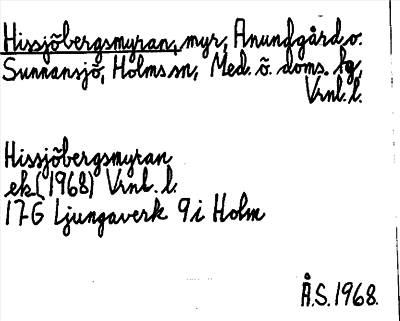 Hissjöbergsmyran, myr, Anundgård o.
Sunnansjö, Holms sn, Med. ö. doms. fg,
Vrnl. l.
Hissjöbergsmyran
ek. (1968) Vrnl. l.
17G Ljungaverk 9i Holm
Å.S. 1968.